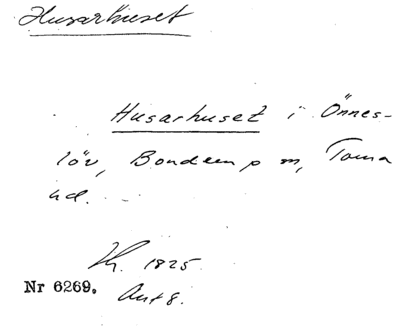 Husarhuset
Husarhuset i Önnes-
löv, Bondeum p m, Torna
hd.
Kh. 1825.
Nr 6269.
Ant 8.